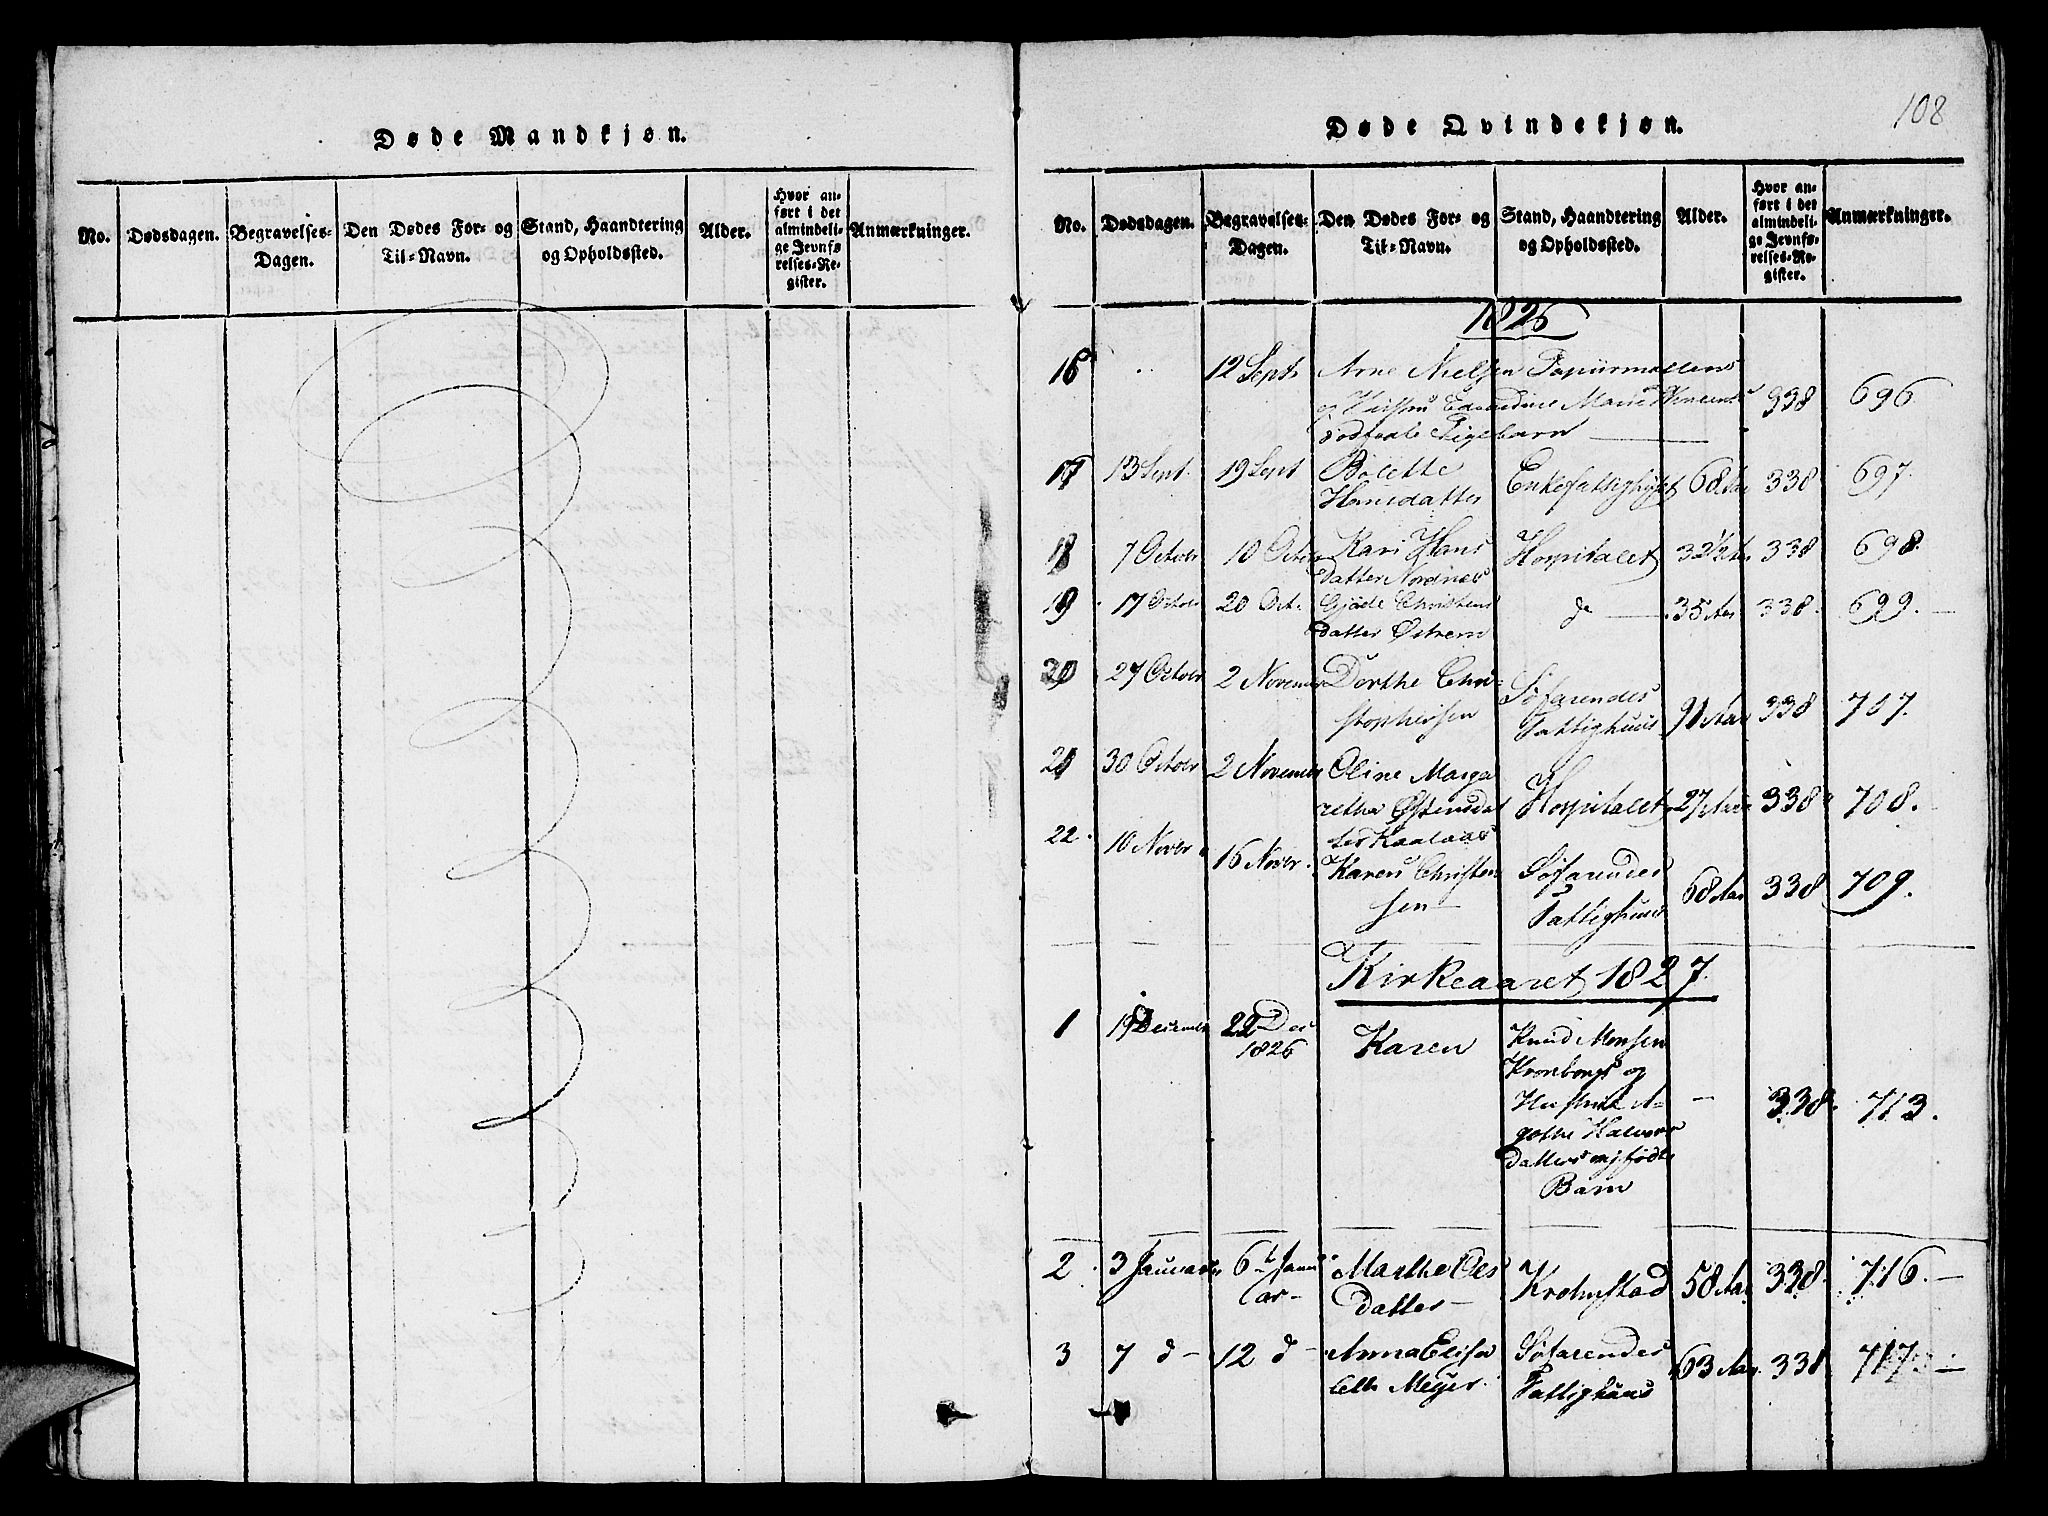 108
Døde Mandkjøn.
No. Dødsdagen. Begravelses-Dagen. Den Dødes For- og Til-Navn. Stand, Haandtering og Opholdssted. Alder. Hvor anført i det almindelige Jevnførelses-Register. Anmærkninger.
Døde Qvindekjøn.
No. Dødsdagen. Begravelses-Dagen. Den Dødes For- og Til-Navn. Stand, Haandtering og Opholdssted. Alder. Hvor anført i det almindelige Jevnførelses-Register. Anmærkninger.
1826
16 12 Sept Arne Nielsen Papiirmøllens
og Marie 338 696
dødfødte Pigebarn
17 13 Sept. 19 Sept Bolette Enkefattighuset 68 Aar 338 697.
Hansdatter
18 7 Octobr 10 Octbr Kari Hans Hospitalet 32½ 338 698.
datter Nordnes
19 17 Octobr 20 Oct. Christens do 35 Aar 338. 699.
datter Østrem
20 27 Octobr 2 November Dorthe Chri- Søfarendes 91 Aar 338 707.
stophersen Fattighuus
21 30 Octobr 2 November Oline Marga Hospitalet 27 Aar 338 708.
retha Østensdat
ter Kaalaas
22. 10 Novbr 16 Novbr. Karen Christen Søfarendes 68 Aar 338 709.
sen Fattighuus
Kirkeaaret 1827.
1 19 December 22 Des Karen Knud Monsen 338. 713.
1826 Kronborg og
Hustrue A-
gathe Halvors
datters fødte
Barn
2 3 Januar 6t Janu Marthe Ols Krohnstad 58 Aar 338. 716.
ar datter
3 7 d 12 d Anna Elisa Søfarendes 63 Aar. 338 717.
beth Meyer. Fattighuus